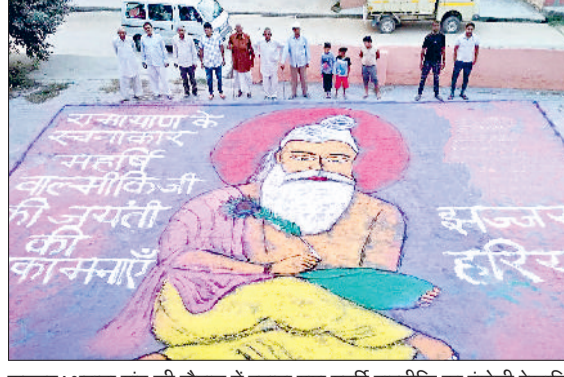 रामायण के
रचनाकार
महर्षि
वाल्मीकि जी
की जयंती
की
कामनाएँ
झज्जर
हरि